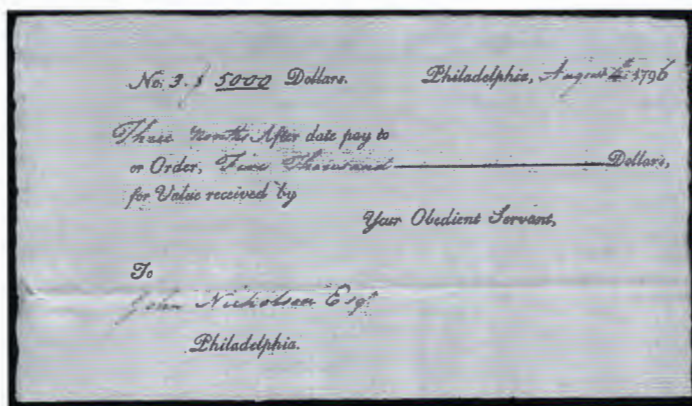 No. 3. $ 5000 Dollars. Philadelphia, August 4th 1796
Three Months After date pay to
or Order, Five Thousand Dollars,
for Value received by
Your Obedient Servant,
To
John Nicholson Esqr
Philadelphia.